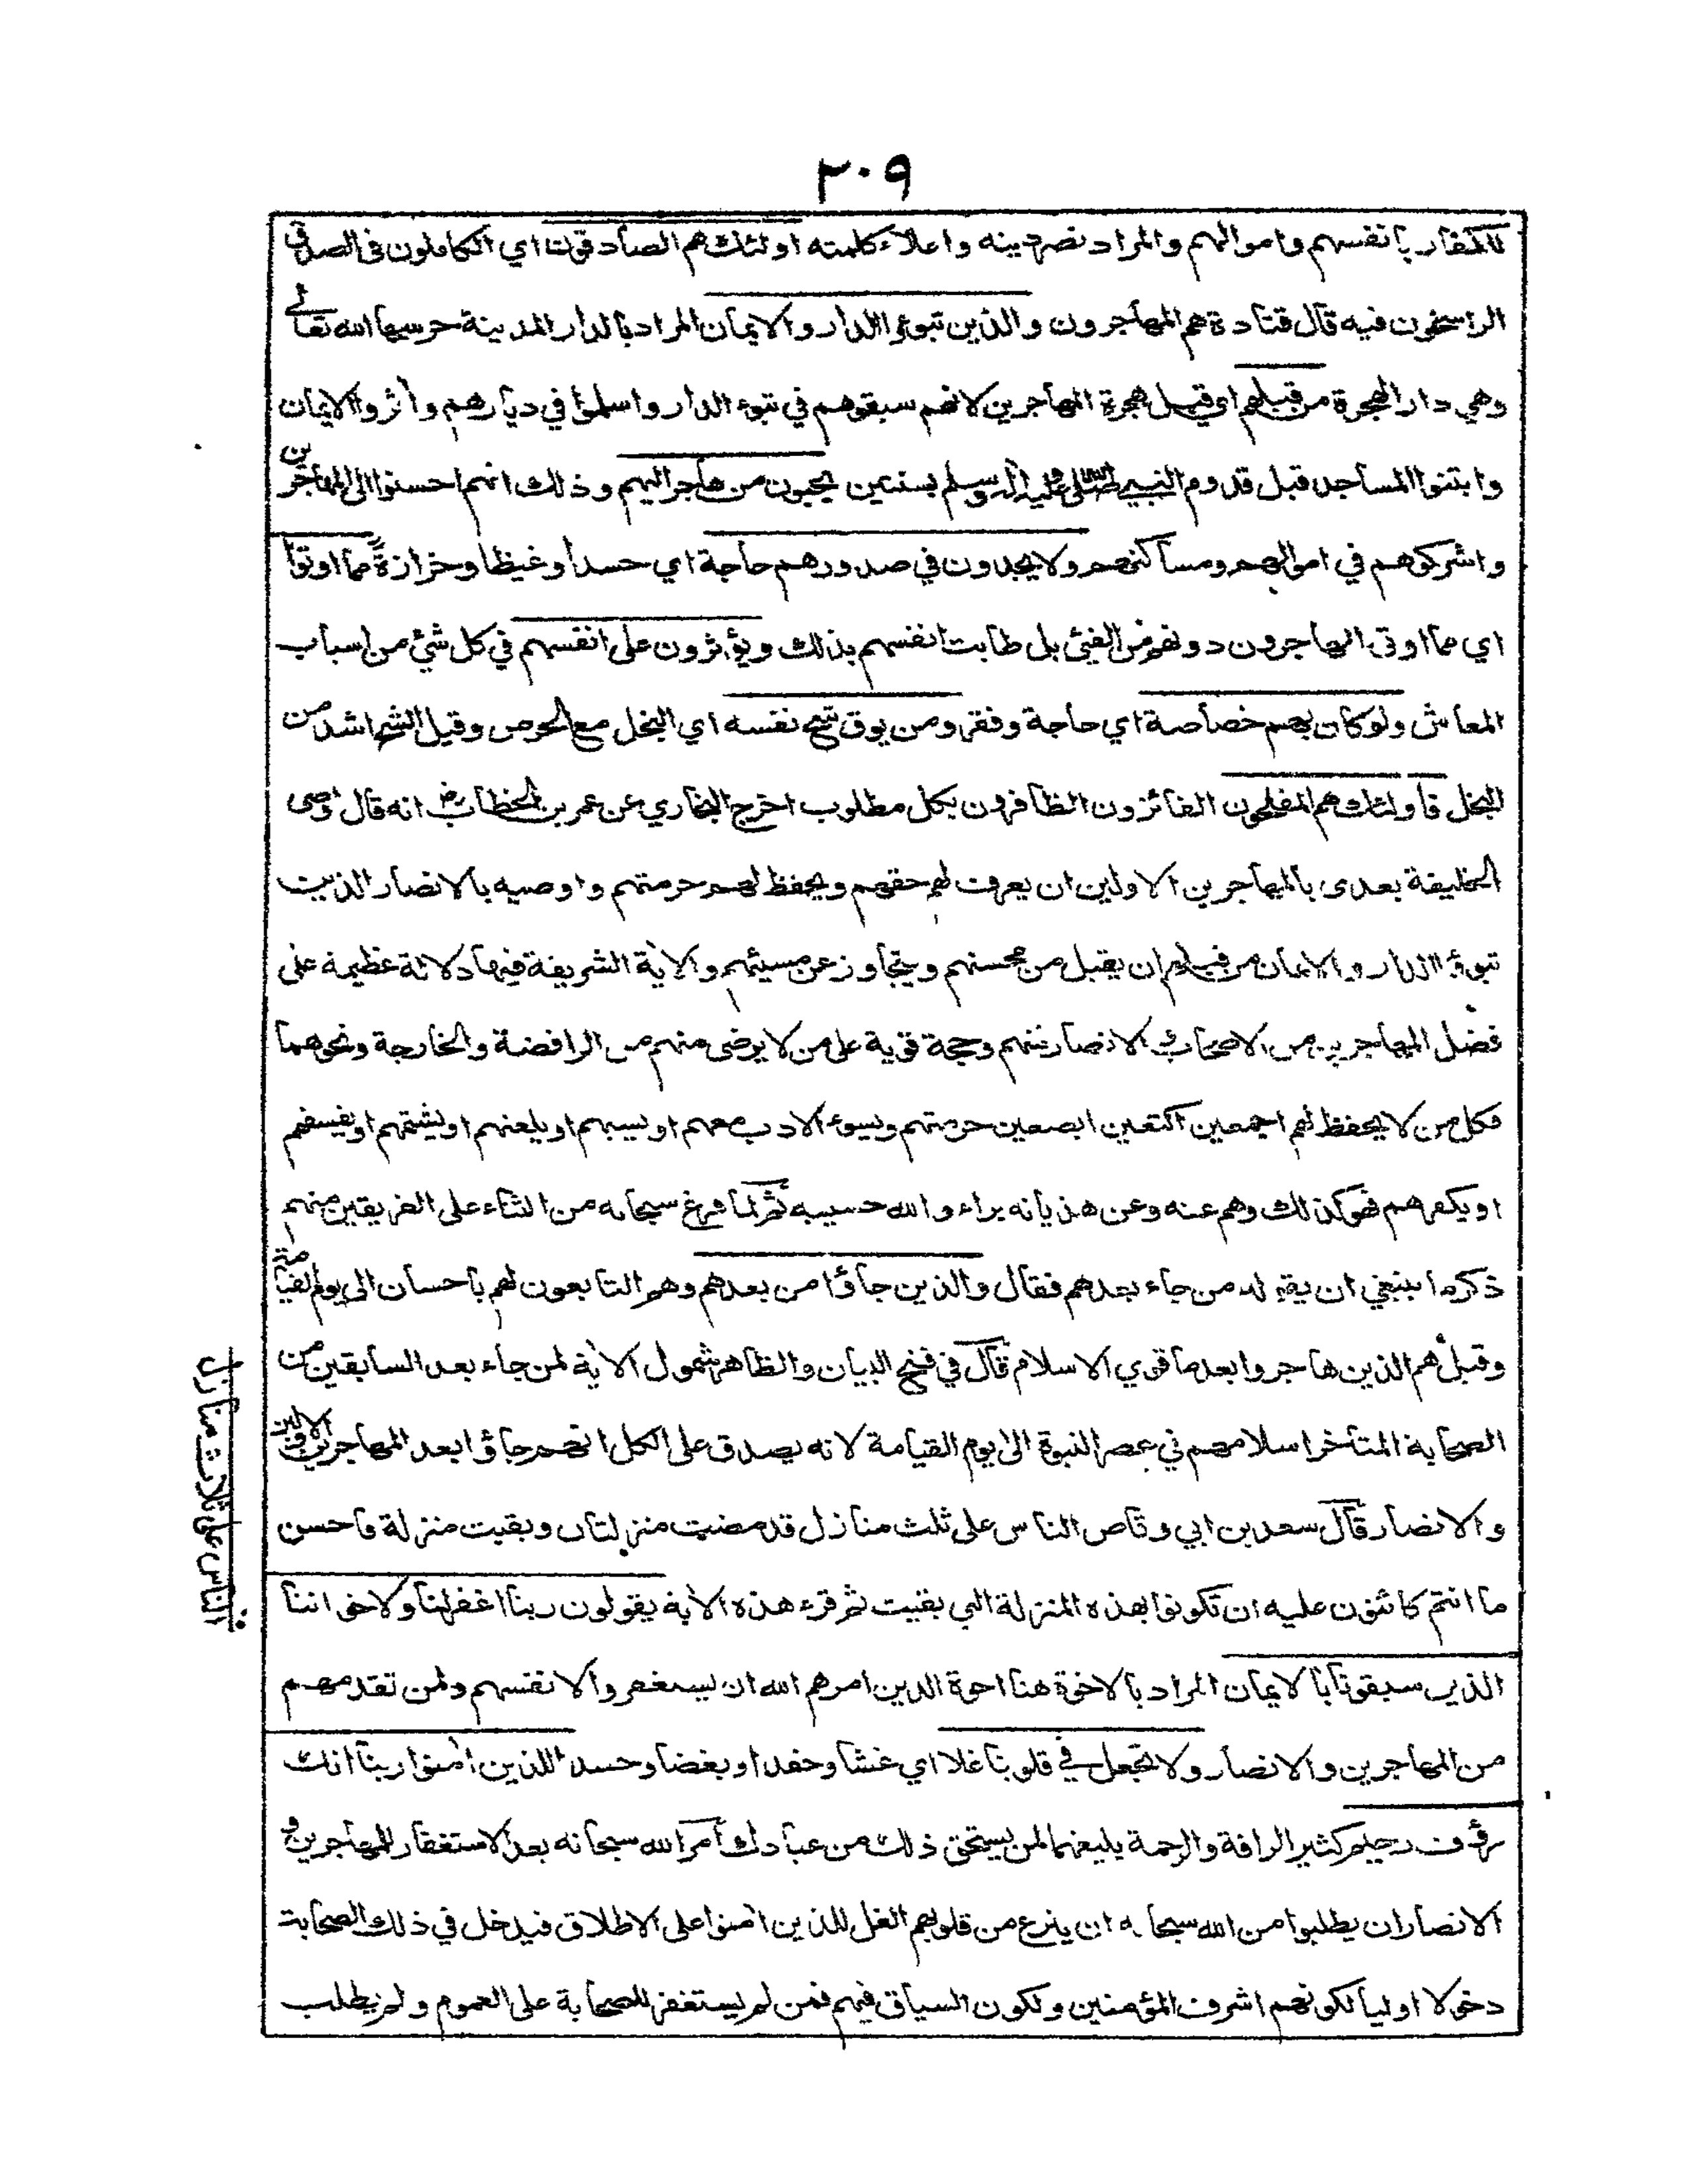 ٢٠٩
للكفار بانفسهم واموالهم والمراد نصر دينه واعلاء كلمته اولئك هم الصادقون اي الكاملون في الصدق
الراسخون فيه قال قتادة هم المهاجرون والذين تبوءوا الدار والايمان المراد بالدار المدينة حرسها الله تعالى
وهي دار الهجرة من قبلهم اي قبل هجرة المهاجرين لانهم سبقوهم في تبوء الدار واسلموا في ديارهم وأثروا الايمان
وابتنوا المساجد قبل قدوم النبي صلى الله عليه وآله وسلم بسنتين يحبون من هاجر اليهم وذلك انهم احسنوا الى المهاجرين
واشركوهم في اموالهم ومساكنهم ولا يجدون في صدورهم حاجة اي حسدا وغيظا وحزازة مما اوتوا
اي مما اوتى المهاجرون دونهم من الفيئ بل طابت انفسهم بذلك ويؤثرون على انفسهم في كل شئ من اسباب
المعاش ولو كان بهم خصاصة اي حاجة وفقر ومن يوق شح نفسه اي البخل مع الحرص وقيل الشح اشد من
البخل فاولئك هم المفلحون الفائزون الظافرون بكل مطلوب اخرج البخاري عن عمر بن الخطاب رض انه قال اوصى
الخليفة بعدى بالمهاجرين الاولين ان يعرف لهم حقهم ويحفظ لهم حرمتهم واوصيه بالانصار الذين
تبوؤ الدار والايمان من قبلهم ان يقبل من محسنهم ويتجاوز عن مسيئهم والأية الشريفة فيها دلالة عظيمة على
فضل المهاجرين من الاصحاب و الانصار منهم وحجة قوية على من لا يرضى منهم من الرافضة والخارجة ونحوهما
فكل من لا يحفظ لهم اجمعين اكتعين ابصعين حرمتهم ويسوء الادب معهم او يسبهم او يلعنهم او يشتمهم او يفسقهم
او يكفرهم فهو كذلك وهم عنه وعن هذيانه براء والله حسيبه ثم لما فرغ سبحانه من الثناء على الفريقين منهم
ذكر ما ينبغي ان يقوله من جاء بعدهم فقال والذين جاؤا من بعدهم وهم التابعون لهم باحسان الى يوم القيامة
وقيل هم الذين هاجروا بعد ما قوي الاسلام قال في فتح البيان والظاهر شمول الأية لمن جاء بعد السابقين من
الصحابة المتأخر اسلامهم في عصر النبوة الى يوم القيامة لانه يصدق على الكل انهم جاؤا بعد المهاجرين الاولين
والانصار قال سعد بن ابي وقاص الناس على ثلث منازل قد مضيت منزلتان وبقيت منزلة فاحسن
ما انتم كائنون عليه ان تكونوا بهذه المنزلة التي بقيت ثم قرء هذه الأية يقولون ربنا اغفر لنا ولاخواننا
الذين سبقونا بالايمان المراد بالاخوة هنا اخوة الدين امرهم الله ان يستغفروا لانفسهم ولمن تقدمهم
من المهاجرين والانصار ولا تجعل في قلوبنا غلا اي غشا وحقدا وبغضا وحسدا للذين أمنوا ربنا انك
رؤف رحيم كثير الرافة والرحمة بليغهما لمن يستحق ذلك من عبادك أمر الله سبحانه بعد الاستغفار للمهاجرين و
الانصار ان يطلبوا من الله سبحانه ان ينزع من قلوبهم الغل للذين أمنوا على الاطلاق فيدخل في ذلك الصحابة
دخولا اوليا لكونهم اشرف المؤمنين ولكون السياق فيهم فمن لم يستغفر للصحابة على العموم ولم يطلب
الناس على ثلاث منازل